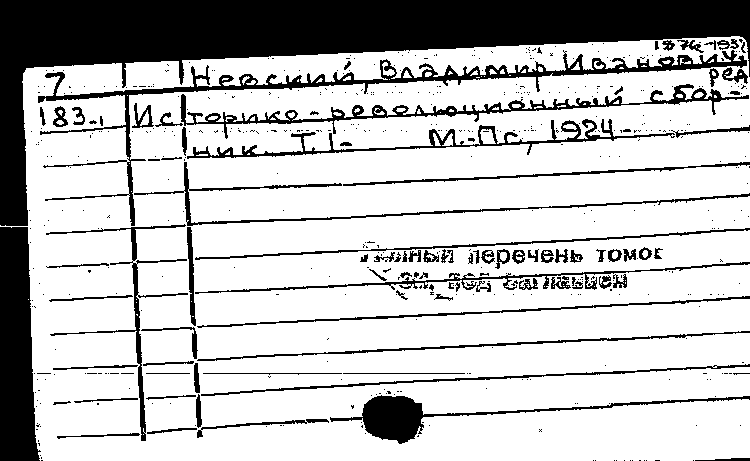 1876-1937
7 Невский, Владимир Иванович,
ред
183-1 Историко-революционный сбор-
ник. Т. 1- М.-Пг, 1924-
Полный перечень томов
см. под заглавием